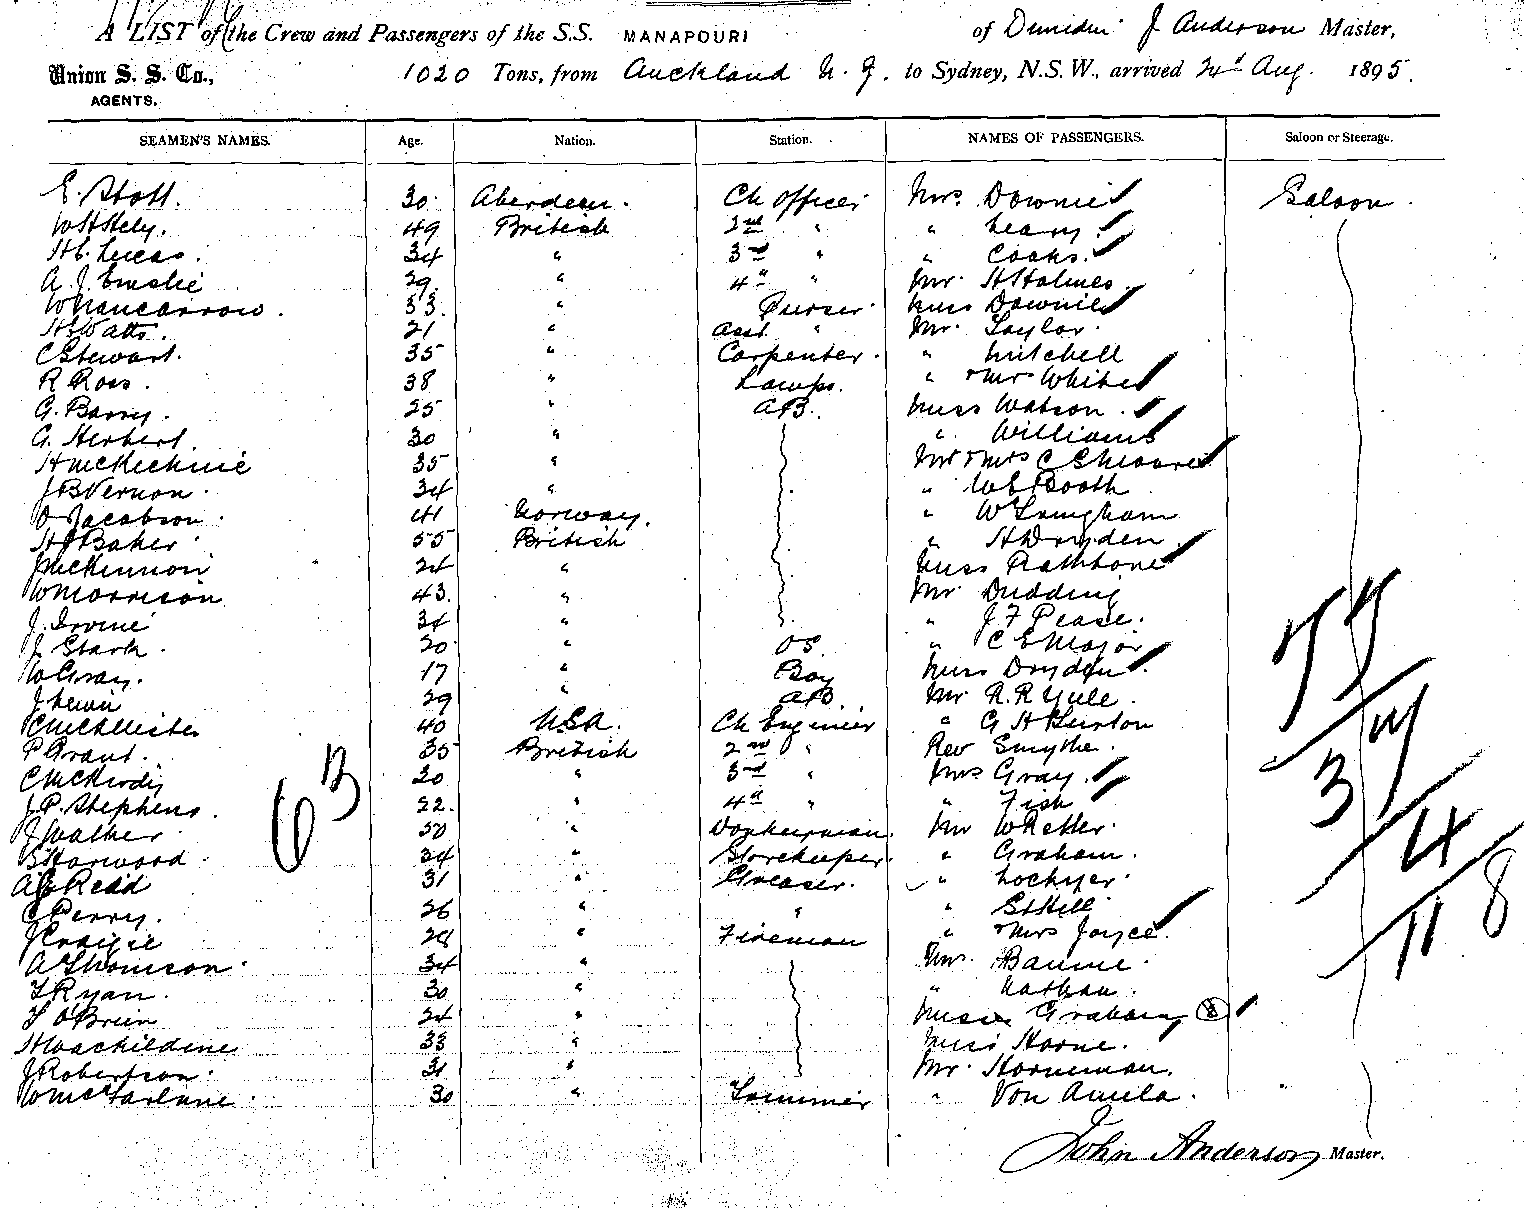 A LIST of the Crew and Passengers of the S.S. MANAPOURI of Dunedin J. Anderson Master,
Union S. S. Co., AGENTS. 1020 Tons, from Auckland N. Z. to Sydney, N.S.W., arrived 24th Aug. 1895.
SEAMEN'S NAMES. Age. Nation. Station. NAMES OF PASSENGERS. Saloon or Steerage.
E. Stott. 30. Aberdeen. Ch Officer Mrs. Downie Saloon.
W H Hely. 49 British 2nd " " Leary
H C. Lucas. 34 " 3rd " " Cooks.
A. J. Emslie 29. " 4th " Mr. H Holmes.
W Nancarrow. 33. " Purser Miss Downie
H Watts. 21 " Asst. " Mr. Taylor.
C Stewart. 35 " Carpenter. " Mitchell
R Ross. 38 " Lamps. " & Mrs White
G. Barry. 25 " AB. Miss Watson.
G. Herbert. 30 " " Williams
H McKechnie 35 " Mr & Mrs C
J B Vernon. 34 " " W E Booth
O Jacobson. 41 Norway. " W Langham
H J Baker 55 British " H Dryden
J McKinnon 24 " Miss Rathbone
W Morrison 43. " Mr Dudding
J. Irvine 34 " " J F Pease.
J. Stark. 20. " OS. " C E Major
W Gray. 17 " Boy Miss Dryden
J Lewis 29 " AB. Mr R. R Yule.
McAllister 40 USA. Ch Engineer " G H Burton
P Grant. 35 British 2nd " Rev Smythe.
C McHardy 30 " 3rd " Mrs Gray.
J. P. Stephens. 22. " 4th " " Fish
J Walker 50 " Donkeyman. Mr W Retter.
Harwood. 34 " Storekeeper. " Graham.
A E Read 31 " Greaser. " Lockyer
C Perry. 26 " " " St Hill
J Craigie 28 " Fireman " & Mrs Joyce.
A Thomson. 34 " Mr. Baume.
T Ryan. 30 " " Nathan.
T O'Brien 24 " Misses Graham
33 " Miss Horne.
J Robertson. 31 " Mr. Horneman.
W McFarlane 30 " Trimmer " Von
63
77
37
4
118
John Anderson Master.